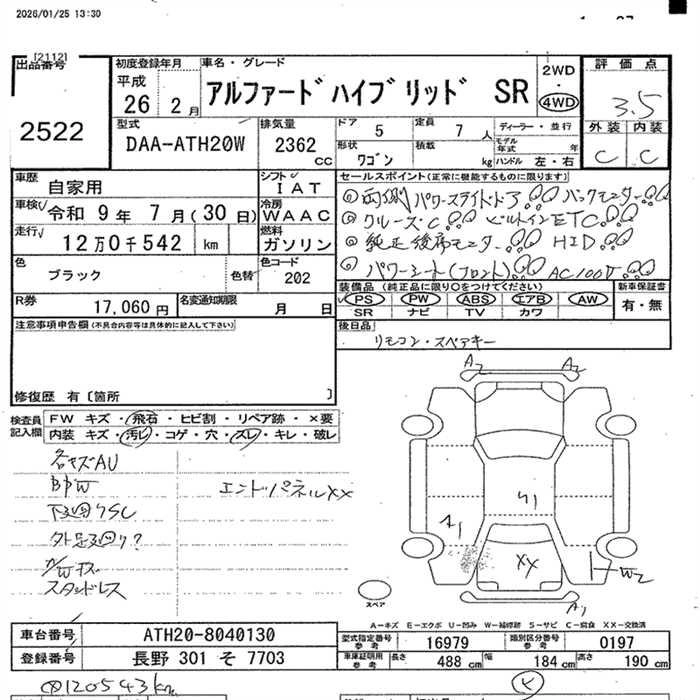 2026/01/25 13:30
[2112]
出品番号 初度登録年月 車名・グレード 2WD 評価点
平成 26 2月 アルファード ハイブリッド SR 4WD 3.5
2522
型式 排気量 ドア 5 定員 7人 ディーラー・並行 外装 内装
DAA-ATH20W 2362 cc 形状 ワゴン 積載 kg モデル年式 年 ハンドル 左・右 C C
車歴 自家用 シフト IAT セールスポイント(正常に機能するものに限ります)
車検 令和 9年 7月(30日) 冷房 WAAC
走行 12万0千542 km 燃料 ガソリン
◎両側パワースライドドア バックモニター
◎クルーズ.C ビルトインETC
◎純正後席モニター HID
◎パワーシート(フロント) AC100V
色 ブラック 色替 色コード 202
装備品(純正品に限り○をつけてください) 新車保証書
PS PW ABS エアB AW 有・無
SR ナビ TV カワ
R券 17,060円 名変通知期限 月 日
注意事項申告欄(不具合内容等は具体的に記入して下さい)
後日品 リモコン・スペアキー
修復歴 有〔箇所 〕
検査員記入欄 FW キズ・飛石・ヒビ割・リペア跡・×要
内装 キズ・汚レ・コゲ・穴・スレ・キレ・破レ
A2 A2
各キズAU
BPW エンドパネルXX
下廻りSC
外足廻り?
スタッドレス
A1 XX W2
A1
スペア
A-キズ E-エクボ U-凹み W-補修跡 S-サビ C-腐食 XX-交換済
車台番号 ATH20-8040130 型式指定番号 参考 16979 類別区分番号 参考 0197
登録番号 長野 301 そ 7703 車体証明発行 参考 長さ 488 cm 幅 184 cm 高さ 190 cm
120543km